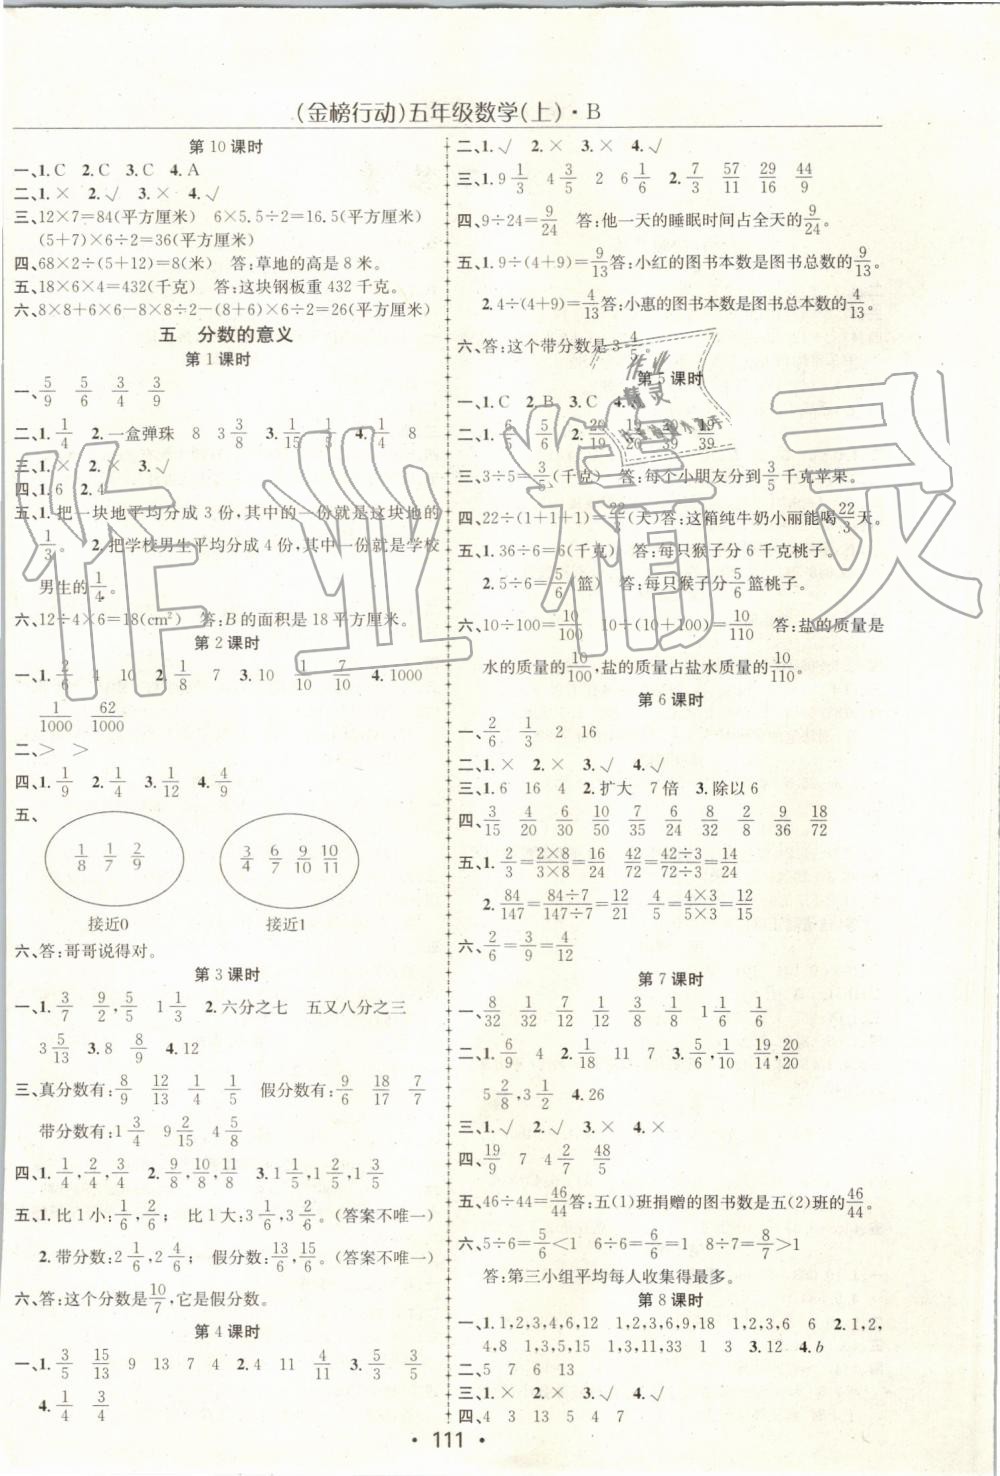 (金榜行动)五年级数学(上)·B
第10课时
一、1. C 2. C 3. C 4. A
二、1. × 2. √ 3. × 4. √
三、12×7=84(平方厘米) 6×5.5÷2=16.5(平方厘米)
(5+7)×6÷2=36(平方厘米)
四、68×2÷(5+12)=8(米) 答:草地的高是8米。
五、18×6×4=432(千克) 答:这块钢板重432千克。
六、8×8+6×6-8×8÷2-(8+6)×6÷2=26(平方厘米)
五 分数的意义
第1课时
一、5/9 5/6 3/4 3/9
二、1. 1/4 2. 一盒弹珠 8 3 3/8 3. 1/15 1/5 4. 1/4 8
三、1. × 2. × 3. √
四、1. 6 2. 4
五、1. 把一块地平均分成3份,其中的一份就是这块地的
1/3。 2. 把学校男生平均分成4份,其中一份就是学校
男生的1/4。
六、12÷4×6=18(cm²) 答:B的面积是18平方厘米。
第2课时
一、1. 2/6 4 10 2. 1/8 7 3. 10 1/10 7/10 4. 1000
1/1000 62/1000
二、> >
四、1. 1/9 2. 1/4 3. 1/12 4. 4/9
五、
1/8 1/7 2/9
3/4 6/7 9/10 10/11
接近0 接近1
六、答:哥哥说得对。
第3课时
一、1. 3/7 9/2,5/5 1 1/3 2. 六分之七 五又八分之三
3 5/13 3. 8 8/9 4. 12
三、真分数有:8/9 12/13 1/4 1/5 假分数有:9/6 18/17 7/7
带分数有:1 3/4 9 2/15 4 5/8
四、1. 1/4,2/4,3/4 2. 9/8,10/8,11/8 3. 1 1/5,1 2/5,1 3/5
五、1. 比1小:1/6,2/6; 比1大:3 1/6,3 2/6。(答案不唯一)
2. 带分数:2 1/6,2 4/6; 假分数:13/6,15/6。(答案不唯一)
六、答:这个分数是10/7,它是假分数。
第4课时
一、1. 3/5 15/13 9 13 7 4 2. 4 11 4/11 3. 5/3 3/5
4. 1/4 3/4
二、1. √ 2. × 3. × 4. √
三、1. 9 1/3 4 3/5 2 6 1/6 2. 7/3 57/11 29/16 44/9
四、9÷24=9/24 答:他一天的睡眠时间占全天的9/24。
五、1. 9÷(4+9)=9/13答:小红的图书本数是图书总数的9/13。
2. 4÷(4+9)=4/13答:小惠的图书本数是图书总本数的4/13。
六、答:这个带分数是3 4/5。
第5课时
一、1. C 2. B 3. C 4.
二、1. 6/5 5/6 2. 20/19 19/20 39 19/39
三、3÷5=3/5(千克) 答:每个小朋友分到3/5千克苹果。
四、22÷(1+1+1)=22/3(天)答:这箱纯牛奶小丽能喝22/3天。
五、1. 36÷6=6(千克) 答:每只猴子分6千克桃子。
2. 5÷6=5/6(篮) 答:每只猴子分5/6篮桃子。
六、10÷100=10/100 10÷(10+100)=10/110 答:盐的质量是
水的质量的10/100,盐的质量占盐水质量的10/110。
第6课时
一、2/6 1/3 2 16
二、1. × 2. × 3. √ 4. √
三、1. 6 16 4 2. 扩大 7倍 3. 除以6
四、3/15 4/20 6/30 10/50 7/35 6/24 8/32 2/8 9/36 18/72
五、1. 2/3=2×8/3×8=16/24 42/72=42÷3/72÷3=14/24
2. 84/147=84÷7/147÷7=12/21 4/5=4×3/5×3=12/15
六、2/6=3/9=4/12
第7课时
一、8/32 1/32 7/12 1/12 3/8 1/8 1 1/6 1/6
二、1. 6/9 4 2. 1/18 11 7 3. 5/6,1/10 19/14,20/20
5 2/8,3 1/2 4. 26
三、1. √ 2. √ 3. × 4. ×
四、19/9 7 4 2/7 48/5
五、46÷44=46/44答:五(1)班捐赠的图书数是五(2)班的46/44。
六、5÷6=5/6<1 6÷6=6/6=1 8÷7=8/7>1
答:第三小组平均每人收集得最多。
第8课时
一、1. 1,2,3,4,6,12 1,2,3,6,9,18 1,2,3,6 6 2. 1,2,
4,8 1,3,5,15 1,3,11,33 1 3 3. 12 4. b
二、5 7 6 13
三、1. × 2. × 3. √ 4. √
四、4 3 13 5 4 7
· 111 ·
作业精灵
作业
精灵